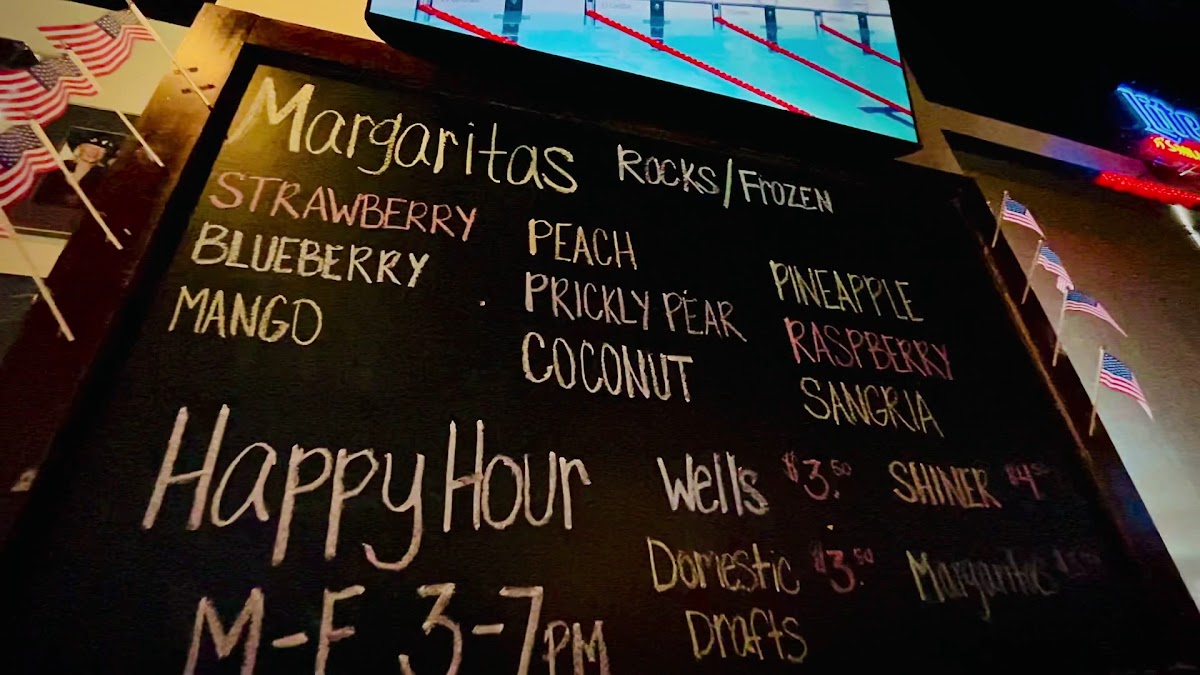 Margaritas Rocks/Frozen
STRAWBERRY
BLUEBERRY
MANGO
PEACH
PRICKLY PEAR
COCONUT
PINEAPPLE
RASPBERRY
SANGRIA
Happy Hour
M-F 3-7PM
Wells $3.50
SHINER $4.50
Domestic $3.50
Drafts
Margaritas
Lite